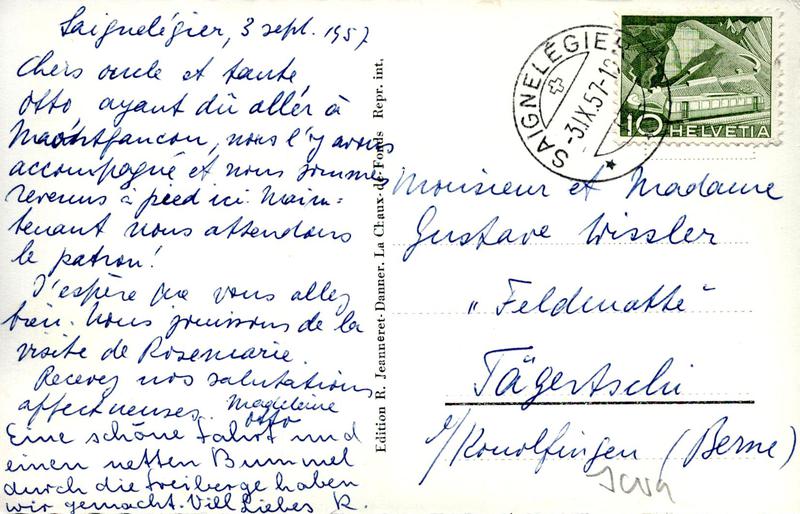 Saignelégier, 3 sept. 1957
Chers oncle et tante
Otto ayant dû aller à
Montfaucon, nous l'y avons
accompagné et nous sommes
revenus à pied ici. Main=
tenant nous attendons
le patron!
J'espère que vous allez
bien. Nous jouissons de la
visite de Rosemarie.
Recevez nos salutations
affectueuses. Madeleine
Otto
Eine schöne Fahrt und
einen netten Bummel
durch die Freiberge haben
wir gemacht. Vill Liebes R.
Edition R. Jeanneret-Danner. La Chaux-de-Fonds Repr. int.
SAIGNELÉGIER
-3.IX.57-1
10 HELVETIA
Monsieur et Madame
Gustave Wissler
„Feldmatte"
Tägertschi
s/Konolfingen (Berne)